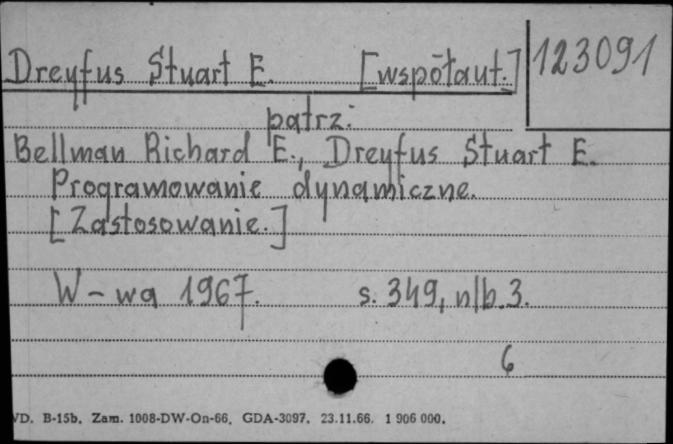 Dreyfus Stuart E. [współaut.] 123091
patrz:
Bellman Richard E., Dreyfus Stuart E.
Programowanie dynamiczne.
[Zastosowanie.]
W-wa 1967. s. 349, nlb. 3.
6
VD. B-15b. Zam. 1008-DW-On-66. GDA-3097. 23.11.66. 1 906 000.